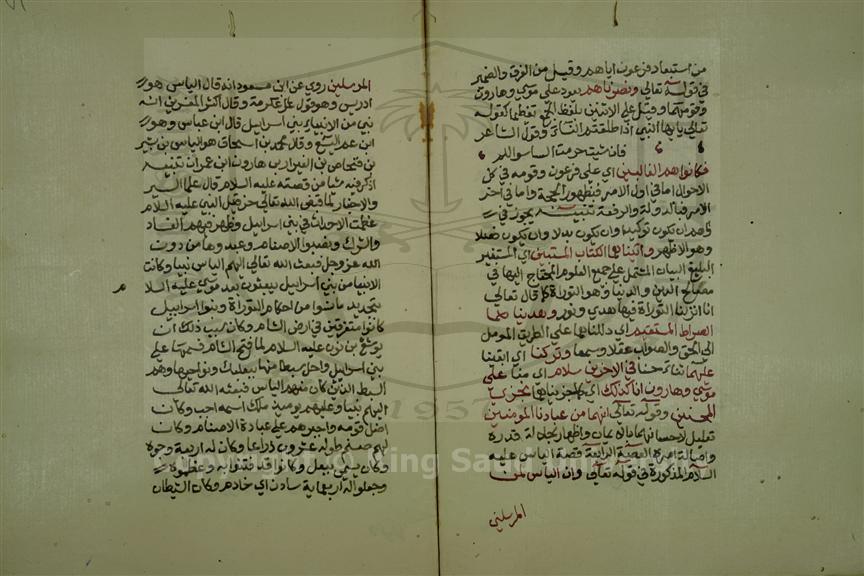 من استبعاد فرعون اياهم وقيل من الغرق والضمير
في قوله تعالى ونصرناهم يعود على موسى وهارون
وقومهما وقيل على الاثنين بلفظ الجمع تعظيما كقوله
تعالى يا ايها النبي اذا طلقتم النسا وقول الشاعر
فان شيت حرمت النسا سواكم
فكانوا هم الغالبين اي على فرعون وقومه في كل
الاحوال اما في اول الامر فبظهور الحجة واما في اخر
الامر فبالدولة والرفعة تنبيه يجوز في
هم ان يكون توكيدا وان يكون بدلا وان يكون فصلا
وهو الاظهر واتيناهما الكتاب المستبين اي المستنير
البليغ البيان المشتمل على جميع العلوم المحتاج اليها في
مصالح الدين والدنيا وهو التوراة كما قال تعالى
انا انزلنا التوراة فيها هدى ونور وهديناهما
الصراط المستقيم اي دللناهما على الطريق الموصل
الى الحق والصواب عقلا وسمعا وتركنا اي ابقينا
عليهما ثناء حسنا في الاخرين سلام اي منا على
موسى وهارون انا كذلك اي كما جزيناهما نجزي
المحسنين وقوله تعالى انهما من عبادنا المومنين
تعليل لاحسانهما بالايمان واظهار لجلالة قدره
واصالة امره القصة الرابعة قصة الياس عليه
السلام المذكورة في قوله تعالى وان الياس لمن
المرسلين
المرسلين روي عن ابن مسعود انه قال الياس هو
ادريس وهو قول عكرمة وقال اكثر المفسرين انه
نبي من الانبياء بني اسرايل قال ابن عباس وهو
ابن عم اليسع وقال محمد بن اسحاق هو الياس بن بشير
بن فنحاص بن العيزار بن هارون ابن عمران تنبيه
اذكر فيه شيا من قصته عليه السلام قال علما السير
والاخبار لما قبض الله تعالى حزقيل النبي عليه السلام
عظمت الاحداث في بني اسرايل وظهر فيهم الفساد
والشرك ونصبوا الاصنام وعبدوها من دون
الله عز وجل فبعث الله تعالى اليهم الياس نبيا وكانت
الانبيا من بني اسرايل يبعثون بعد موسى عليه السلا م
بتجديد ما نسوا من احكام التوراة وبنوا اسرايل
كانوا متفرقين في ارض الشام وكان سبب ذلك ان
يوشع بن نون عليه السلام لما فتح الشام قسمها على
بني اسرايل واحل سبطا منها ببعلبك ونواحيها وهم
السبط الذين كان منهم الياس فبعثه الله تعالى
اليهم نبيا وعليهم يوميذ ملك اسمه اجب وكان
اضل قومه واجبرهم على عبادة الاصنام وكان
لهم صنم طوله عشرون ذراعا وكان له اربعة وجوه
وكان يسمى ببعل وكانوا قد فتنوا به وعظموه
وجعلوا له اربعماية سادن اي خادم وكان الشيطان
1957
Copyright © King Saud